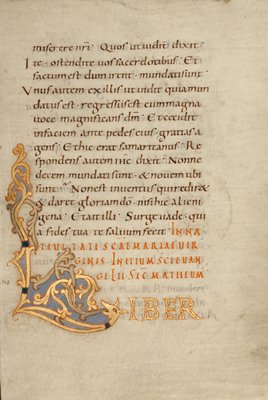 miserere nr̄i. Quos ut uidit dixit
Ite ostendite uos sacerdotibus. Et
factum est dum irent. mundati sunt
Unus autem ex illis ut uidit quia mun
datus est. regressus est cum magna
uoce magnificans dm̄. Et cecidit
in faciem ante pedes eius gratias a
gens. Et hic erat samaritanus. Re
spondens autem ihc dixit. Nonne
decem mundati sunt. & nouem ubi
sunt. Non est inuentus qui redir&
& dar& gloriam dō. nisi hic alieni
gena. Et ait illi. Surge uade. qui
a fides tua te saluum fecit. IN NA
TIUITATE SCAE MARIAE UIR
GINIS. INITIUM SCI EUAN
GELII SEC̄ MATHEUM
LIBER